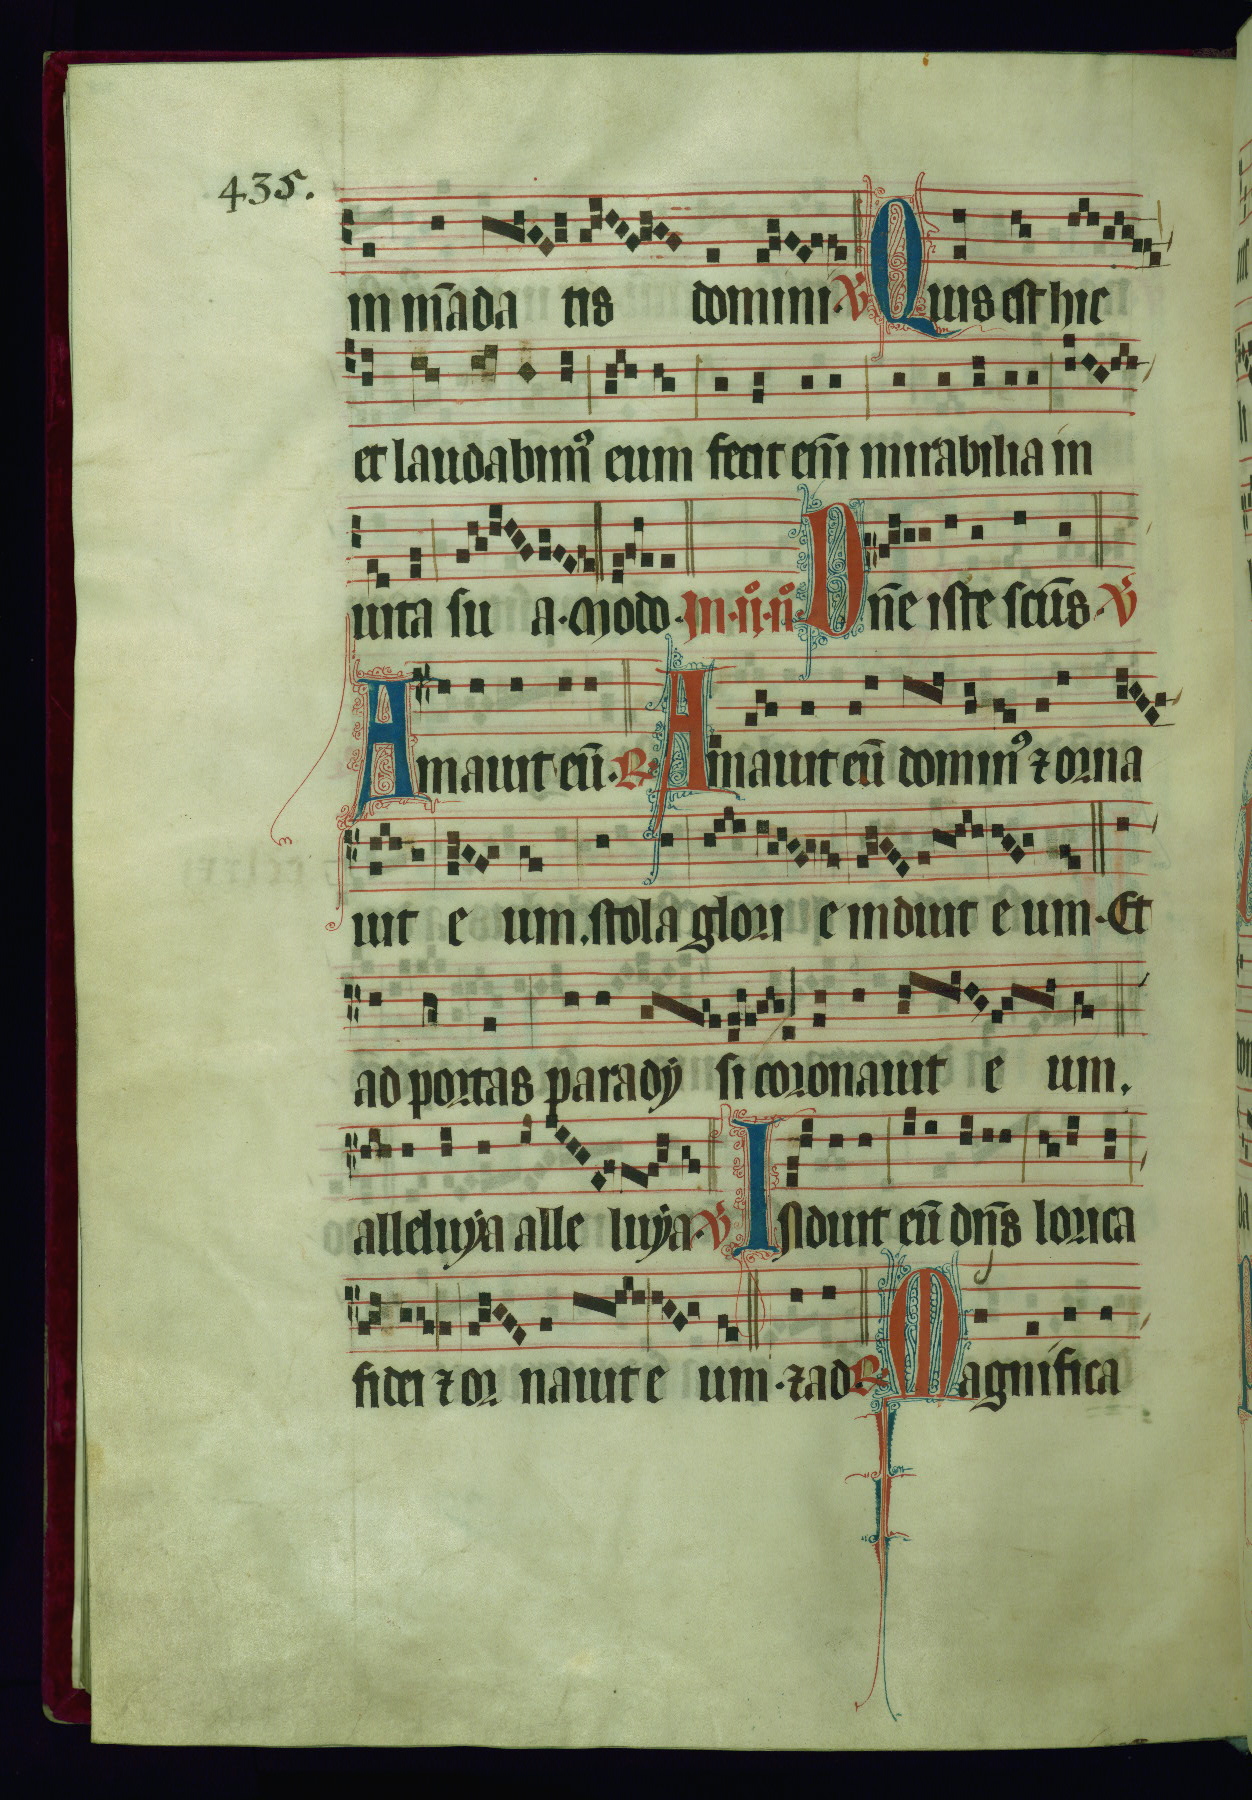 435.
in māda tis domini. V̇ Quis est hic
et laudabim9 eum fecit em̄ mirabilia in
uita su a. Modo. In .ij. n̊. Dn̄e iste scūs. V̇
Amauit eū. R. Amauit eū domin9 ⁊ orna
uit e um. stola glori e induit e um. Et
ad portas parady si coronauit e um.
alleluya alle luya. V̇ Induit eū dn̄s lorica
fidei ⁊ or nauit e um. ⁊ ad. R. Magnifica